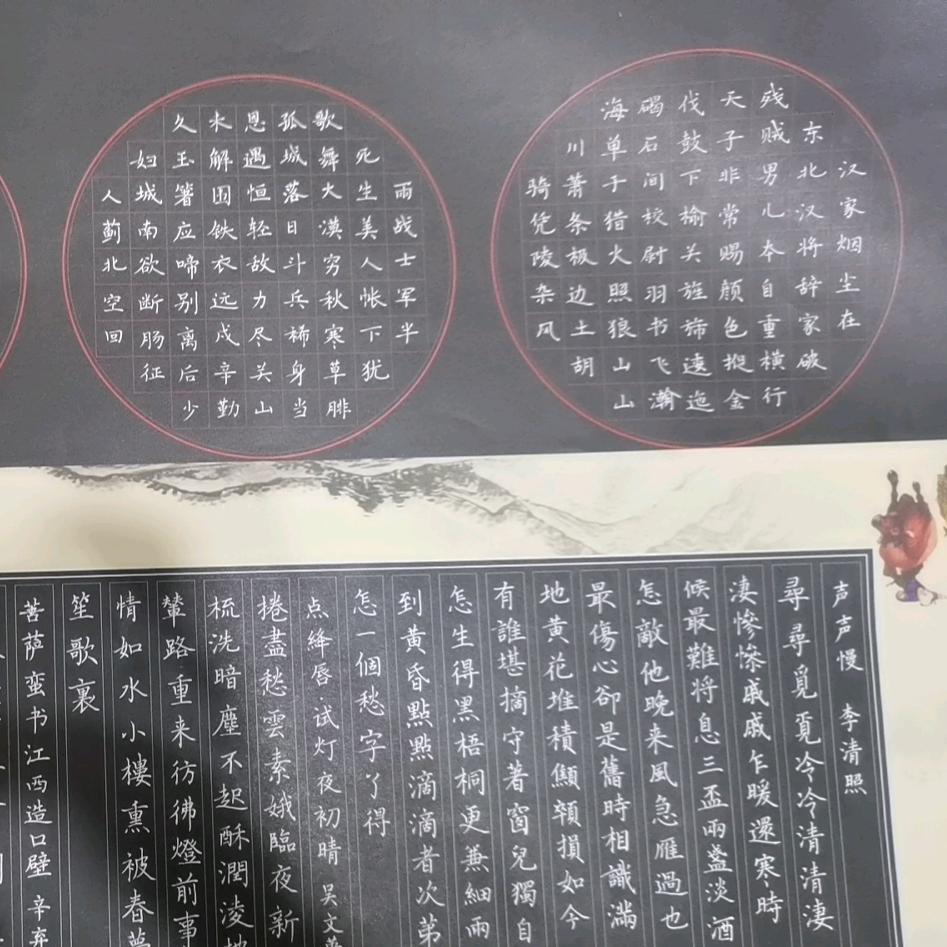 汉家烟尘在
东北汉将辞家破
残贼男儿本自重横行
天子非常赐颜色摐金
伐鼓下榆关旌旆逶迤
碣石间校尉羽书飞瀚
海单于猎火照狼山山
川萧条极边土胡
骑凭陵杂风
雨战士军半
死生美人帐下犹
歌舞大漠穷秋寒草腓
孤城落日斗兵稀身当
恩遇恒轻敌力尽关山
未解围铁衣远戍辛勤
久玉箸应啼别离后少
妇城南欲断肠征
人蓟北空回
声声慢 李清照
尋尋覓覓冷冷清清淒
淒慘慘戚戚乍暖還寒時
候最難将息三盃兩盞淡酒
怎敵他晚来風急雁過也
最傷心卻是舊時相識滿
地黄花堆積顦顇損如今
有誰堪摘守著窗兒獨自
怎生得黑梧桐更兼細雨
到黄昏點點滴滴者次第
怎一個愁字了得
点絳唇·试灯夜初晴 吴文英
捲盡愁雲素娥臨夜新
梳洗暗塵不起酥潤淩地
輦路重来彷彿燈前事
情如水小樓熏被春夢
笙歌裏
菩萨蛮书江西造口壁 辛弃